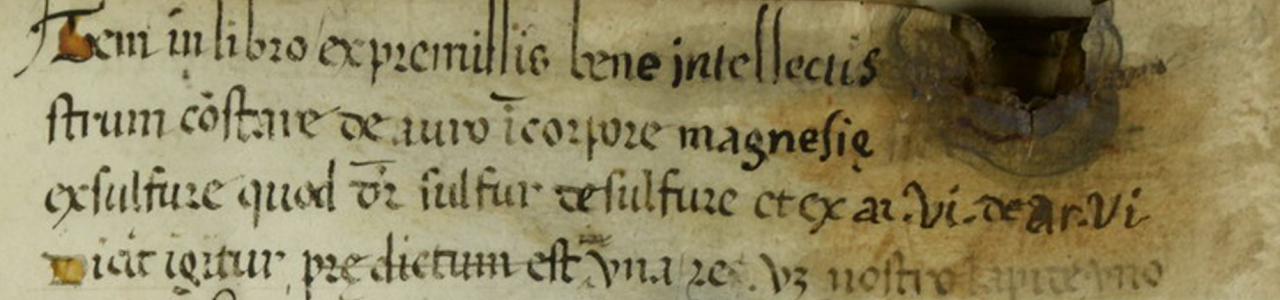 Item in libro ex premissis bene intellectis
strum cōstare de auro ī corpore magnesię
ex sulfure quod dr̄ sulfur de sulfure et ex ar. vi. de ar. vi
Dicit igitur prędictum est vna re. vz nostro lapide vno